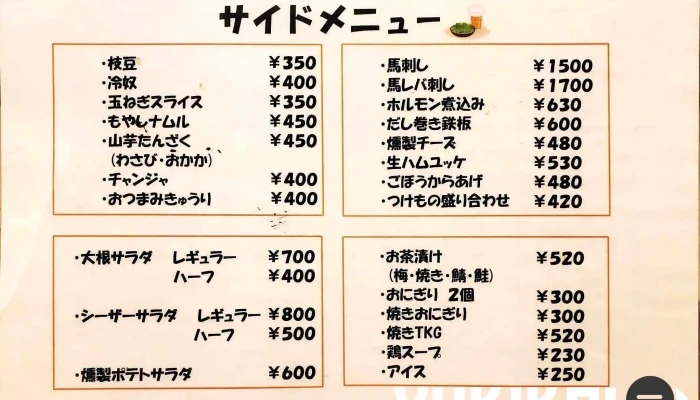 サイドメニュー
・枝豆 ¥350
・冷奴 ¥400
・玉ねぎスライス ¥350
・もやしナムル ¥450
・山芋たんざく ¥450
(わさび・おかか)
・チャンジャ ¥400
・おつまみきゅうり ¥400
・馬刺し ¥1500
・馬レバ刺し ¥1700
・ホルモン煮込み ¥630
・だし巻き鉄板 ¥600
・燻製チーズ ¥480
・生ハムユッケ ¥530
・ごぼうからあげ ¥480
・つけもの盛り合わせ ¥420
・大根サラダ レギュラー ¥700
ハーフ ¥400
・シーザーサラダ レギュラー ¥800
ハーフ ¥500
・燻製ポテトサラダ ¥600
・お茶漬け ¥520
(梅・焼き・鯖・鮭)
・おにぎり 2個 ¥300
・焼きおにぎり ¥300
・焼きTKG ¥520
・鶏スープ ¥230
・アイス ¥250